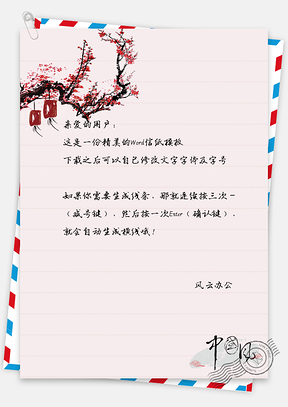 亲爱的用户：
这是一份精美的Word信纸模板
下载之后可以自己修改文字字体及字号
如果你需要生成线条，那就连续按三次－
（减号键），然后按一次Enter（确认键），
就会自动生成横线哦！
风云办公
中国风